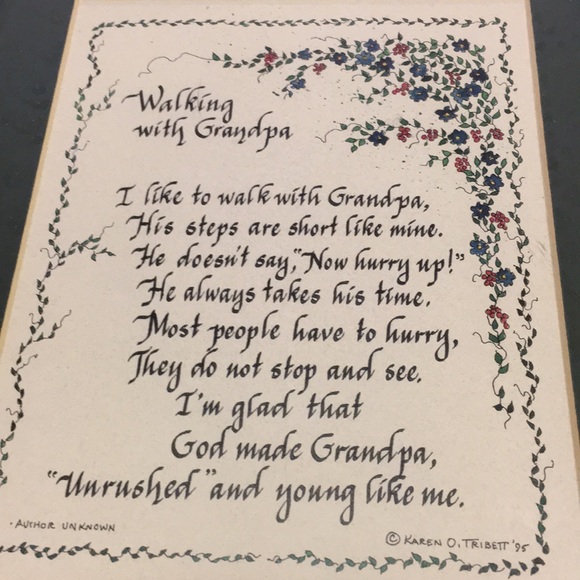 Walking
with Grandpa
I like to walk with Grandpa,
His steps are short like mine.
He doesn't say, "Now hurry up!"
He always takes his time.
Most people have to hurry,
They do not stop and see.
I'm glad that
God made Grandpa,
"Unrushed" and young like me.
·AUTHOR UNKNOWN
© KAREN O. TRIBETT '95